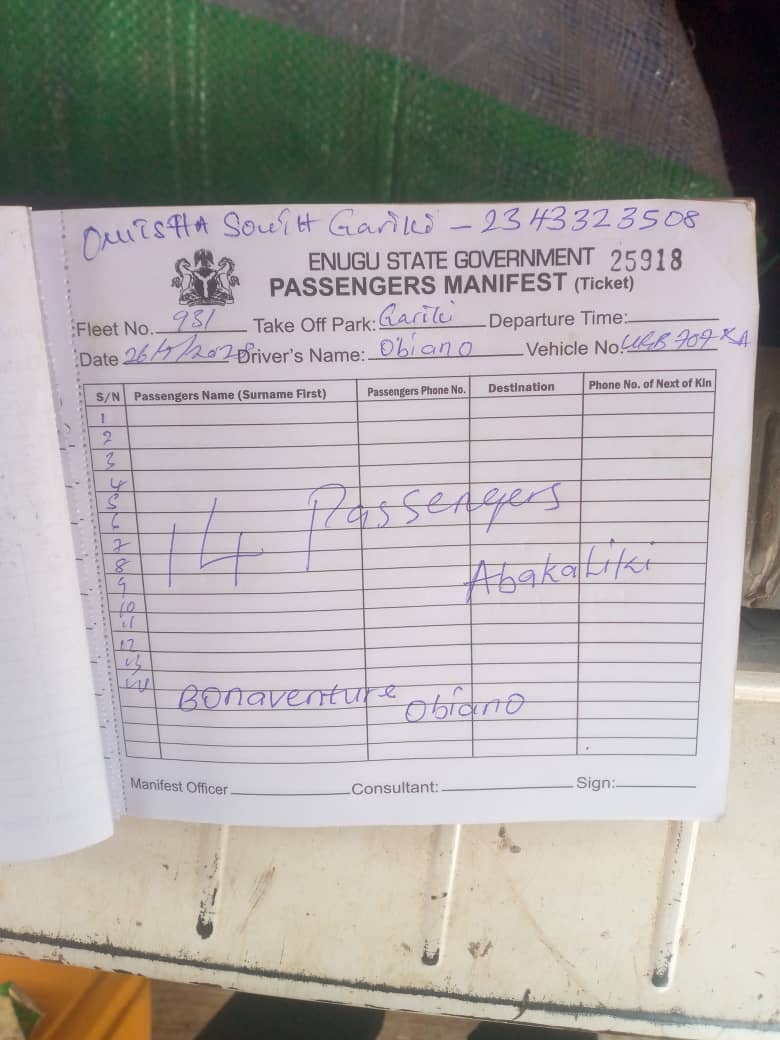 Onitsha South Gariki - 2343323508
ENUGU STATE GOVERNMENT 25918
PASSENGERS MANIFEST (Ticket)
Fleet No. 931 Take Off Park: Gariki Departure Time:
Date Driver's Name: Obiano Vehicle No.
S/N Passengers Name (Surname First) Passengers Phone No. Destination Phone No. of Next of Kin
1
2
3
4
5
6
7
8
9
10
11
12
13
14
14 Passengers
Abakaliki
Bonaventure Obiano
Manifest Officer Consultant: Sign: